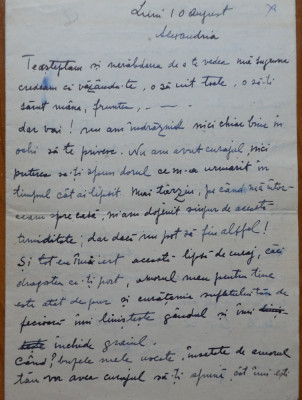 Luni 10 august
Alexandria
Te așteptam și nerăbdarea de a te vedea mă sugruma
credeam că văzându-te, o să uit toate, o să-ți
sărut mâna, fruntea, — . —
dar vai! nu am îndrăznit nici chiar bine în
ochi să te privesc. Nu am avut curajul, nici
puterea să-ți spun dorul ce m-a urmărit în
timpul cât ai lipsit. Mai târziu, pe când mă înter-
ceam spre casă, m-am dojenit singur de această
timiditate; dar dacă nu pot să fiu altfel!
Și tot eu îmi iert această lipsă de curaj, căci
dragostea ce-ți port, amorul meu pentru tine
este atât de pur și curățenia sufletului tău de
fecioară îmi liniștește gândul și îmi
închide graiul.
Când, buzele mele uscate, însetate de amorul
tău vor avea curajul să-ți spună, cât îmi ești